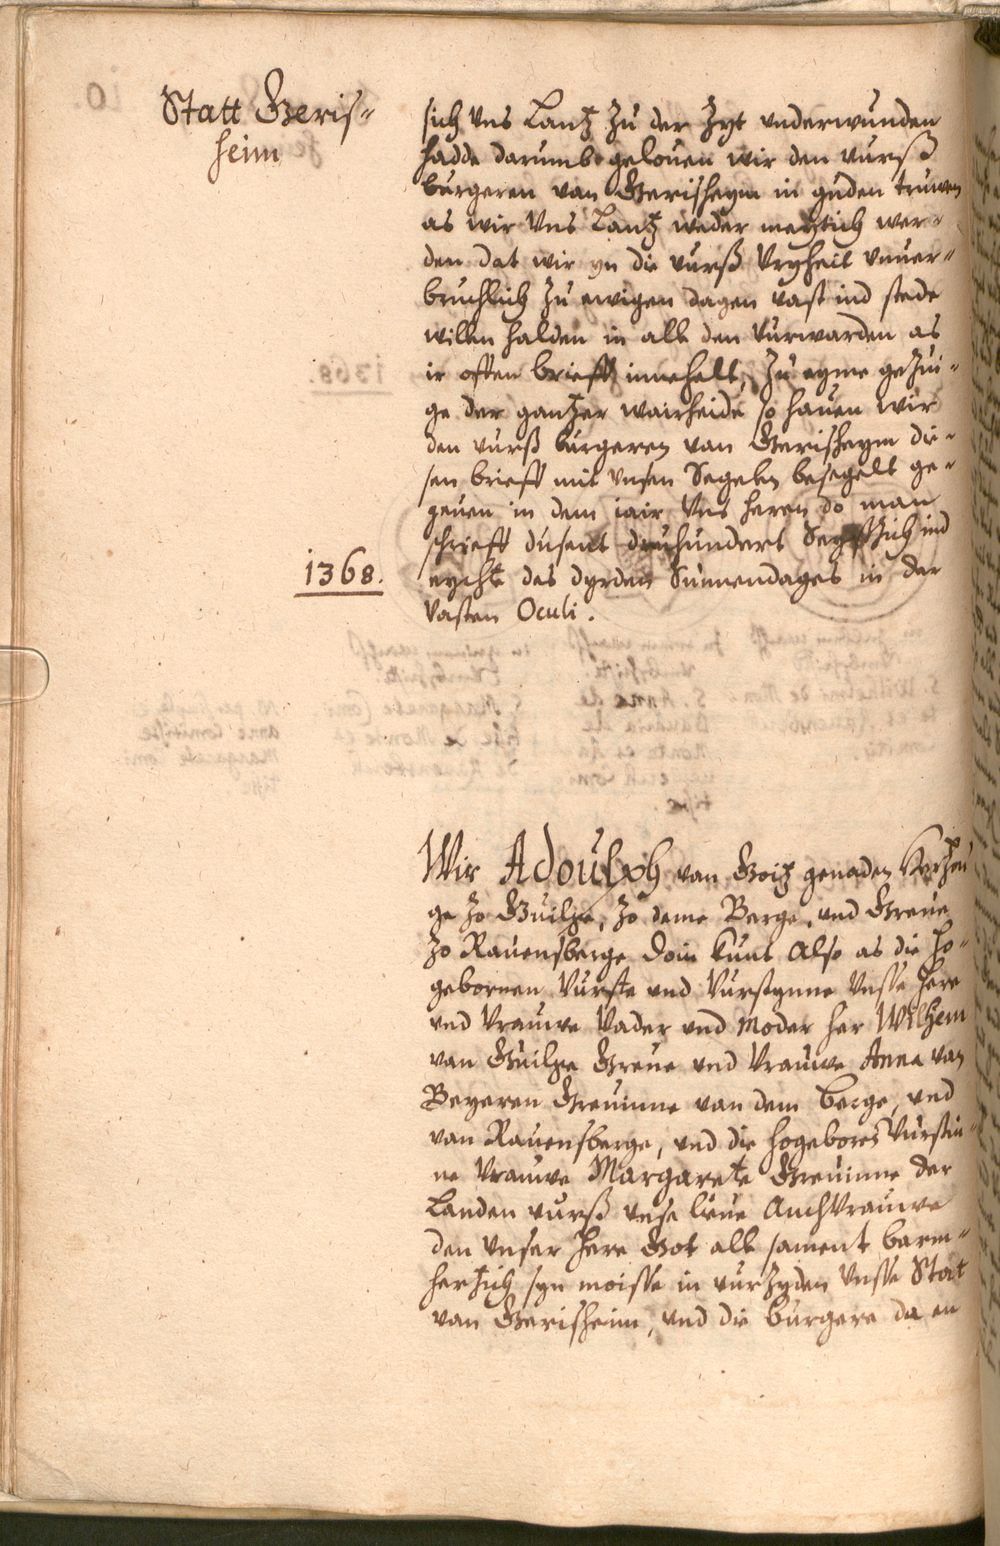 Statt Geris-
heim
sich Uns Lantz zu der Zyt underwunden
hadde darumb gelouen wir den vurß
burgeren van Gerisheym in guden truwen
as wir Uns Lantz weder mechtich wer-
den dat wir yn die vurß Vryheit unuer-
bruchlich zu ewigen dagen vast ind stede
willen halden in all den Vurwarden as
ir offen brieff innehelt, Zu eyme geZui-
ge der gantzer wairheide so hauen wir
den vurß burgeren van Gerisheym die-
sen brieff mit Unsen Segelen besegelt ge-
geuen in dem iair Uns heren do man
schrieff dusent druhundert Seystzich ind
1368.
eycht des dyrden Sunnendages in der
Vasten Oculi.
Wir Adoulph van Goitz genaden Hertzou
ge zo Guilge, zo deme Berge, und Greue
zo Rauensberge doin kunt Also as die ho-
gebornen Vurste und Vurstynne Unsse here
und Vrauwe Vader und Moder her Wilhem
van Guilge Greue und Vrauwe Anna van
Beyeren Greuinne van dem berge, und
van Rauensberge, und die hogeboren Vurstin-
ne Vrauwe Margarete Greuinne der
Landen vurß unse lieue AnchVrauwe
den Unser here Got all sament barm-
hertzich syn moisse in vurZyden Unsse Stat
van Gerisheim, und die burgere da en